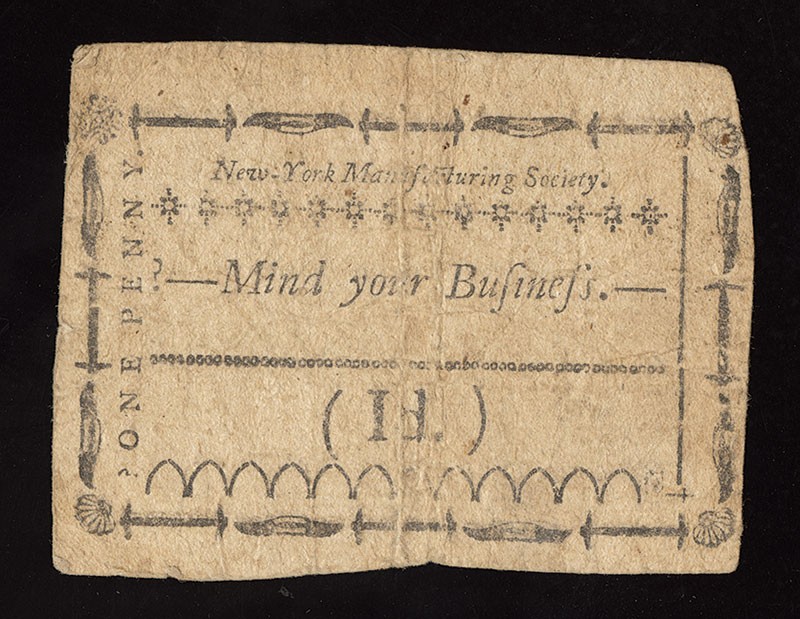 New-York Manufacturing Society.
?—Mind your Buſineſs.—
(Id.)
?ONE PENNY.